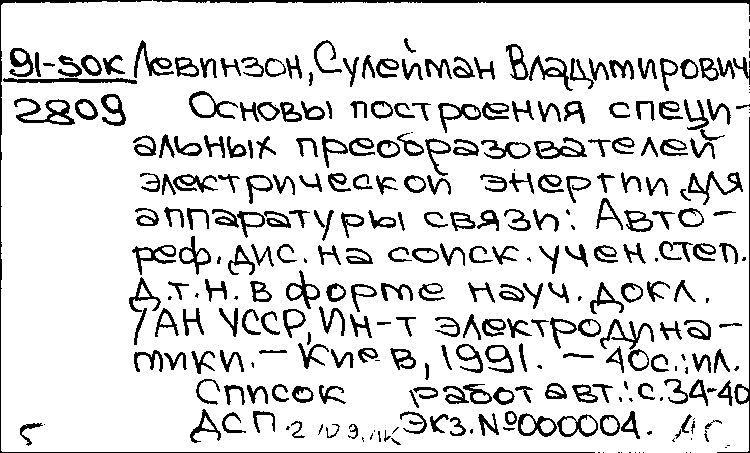 91-50к Левинзон, Сулейман Владимирович
2809 Основы построения специ-
альных преобразователей
электрической энергии для
аппаратуры связи: Авто-
реф. дис. на соиск. учен. степ.
д.т.н. в форме науч. докл.
/АН УССР, Ин-т электродина-
мики. - Киев, 1991. - 40с.: ил.
Список работ авт.: с. 34-40
5 ДСП. Экз. №000004.